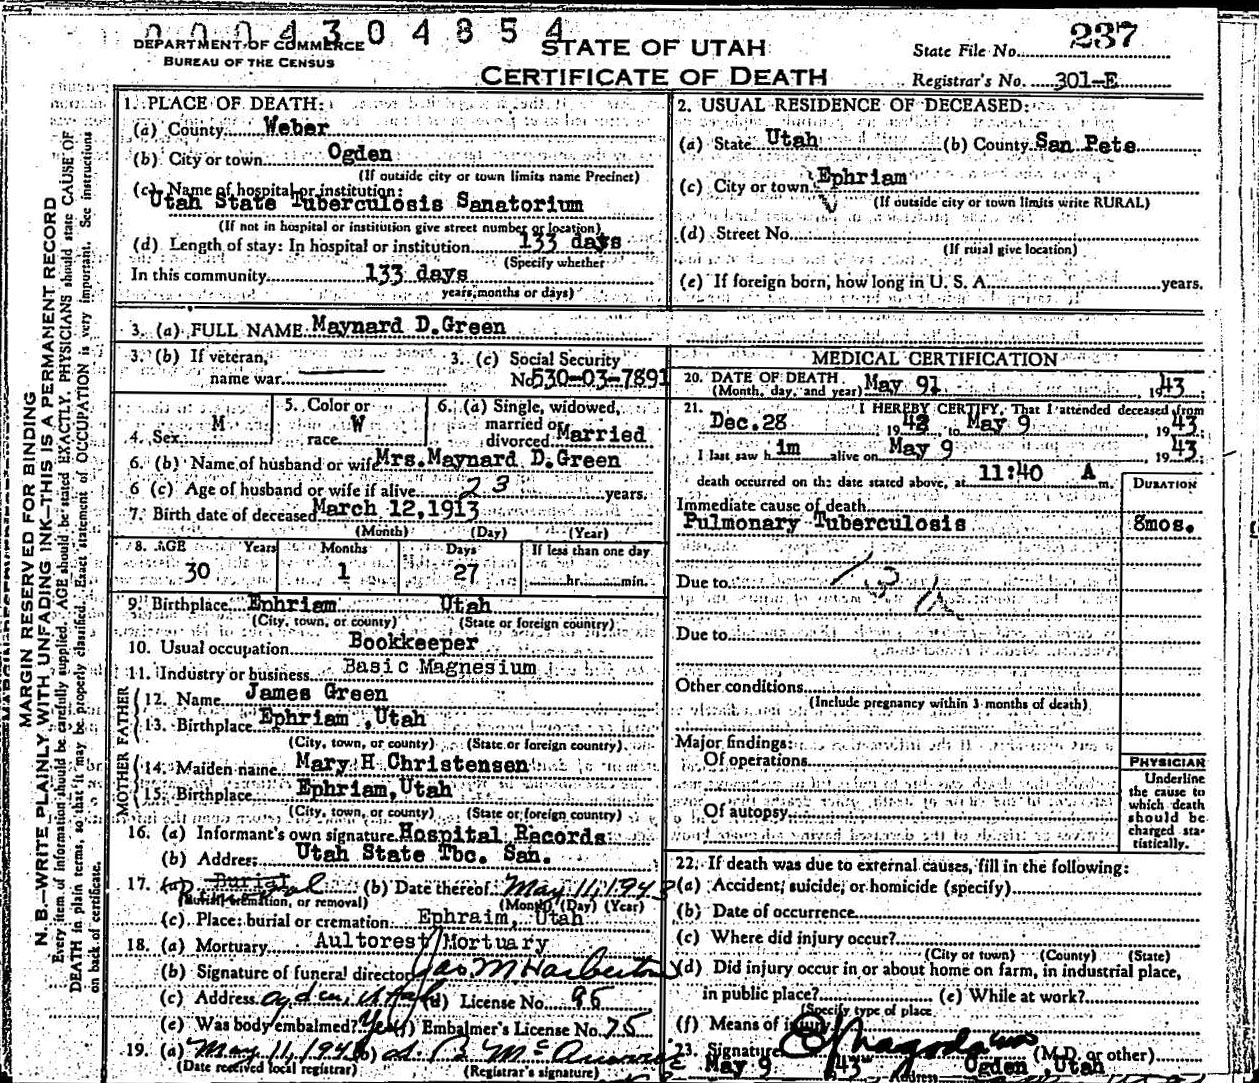 0004304854
DEPARTMENT OF COMMERCE
BUREAU OF THE CENSUS
STATE OF UTAH
CERTIFICATE OF DEATH
State File No. 237
Registrar's No. 301-E
MARGIN RESERVED FOR BINDING
N. B.—WRITE PLAINLY WITH UNFADING INK—THIS IS A PERMANENT RECORD
Every item of information should be carefully supplied. AGE should be stated EXACTLY. PHYSICIANS should state CAUSE OF
DEATH in plain terms, so that it may be properly classified. Exact statement of OCCUPATION is very important. See instructions
on back of certificate.
1. PLACE OF DEATH:
(a) County Weber
(b) City or town Ogden
(If outside city or town limits name Precinct)
(c) Name of hospital or institution:
Utah State Tuberculosis Sanatorium
(If not in hospital or institution give street number or location)
(d) Length of stay: In hospital or institution 133 days
(Specify whether
In this community 133 days
years, months or days)
2. USUAL RESIDENCE OF DECEASED:
(a) State Utah (b) County San Pete
(c) City or town Ephriam
(If outside city or town limits write RURAL)
(d) Street No.
(If rural give location)
(e) If foreign born, how long in U. S. A. years.
3. (a) FULL NAME Maynard D.Green
3. (b) If veteran, name war
3. (c) Social Security No 530-03-7891
4. Sex M
5. Color or race W
6. (a) Single, widowed, married or divorced Married
6. (b) Name of husband or wife Mrs.Maynard D.Green
6 (c) Age of husband or wife if alive 23 years.
7. Birth date of deceased March 12,1913
(Month) (Day) (Year)
8. AGE Years Months Days If less than one day
30 1 27 hr. min.
9. Birthplace Ephriam Utah
(City, town, or county) (State or foreign country)
10. Usual occupation Bookkeeper
11. Industry or business Basic Magnesium
FATHER
12. Name James Green
13. Birthplace Ephriam ,Utah
(City, town, or county) (State or foreign country)
MOTHER
14. Maiden name Mary H Christensen
15. Birthplace Ephriam,Utah
(City, town, or county) (State or foreign country)
16. (a) Informant's own signature Hospital Records
(b) Address Utah State Tbc. San.
17. (a) Burial (b) Date thereof May 11, 1943
(Burial, cremation, or removal) (Month) (Day) (Year)
(c) Place: burial or cremation Ephraim, Utah
18. (a) Mortuary Aultorest Mortuary
(b) Signature of funeral director Jas M Harbertson
(c) Address Ogden, Utah (d) License No. 95
(e) Was body embalmed? Yes (f) Embalmer's License No. 75
19. (a) May 11, 1943 (b)
(Date received local registrar) (Registrar's signature)
MEDICAL CERTIFICATION
20. DATE OF DEATH May 91 , 1943.
(Month, day, and year)
21. I HEREBY CERTIFY, That I attended deceased from
Dec.28 , 1942 to May 9 , 1943.
I last saw him alive on May 9 , 1943
death occurred on the date stated above, at 11:40 A m.
DURATION
Immediate cause of death
Pulmonary Tuberculosis 8mos.
Due to
Due to
Other conditions
(Include pregnancy within 3 months of death)
Major findings:
Of operations
Of autopsy
PHYSICIAN
Underline
the cause to
which death
should be
charged sta-
tistically.
22. If death was due to external causes, fill in the following:
(a) Accident, suicide, or homicide (specify)
(b) Date of occurrence
(c) Where did injury occur?
(City or town) (County) (State)
(d) Did injury occur in or about home on farm, in industrial place,
in public place? (e) While at work?
(Specify type of place
(f) Means of injury
23. Signature (M.D. or other)
May 9 43 Ogden ,Utah